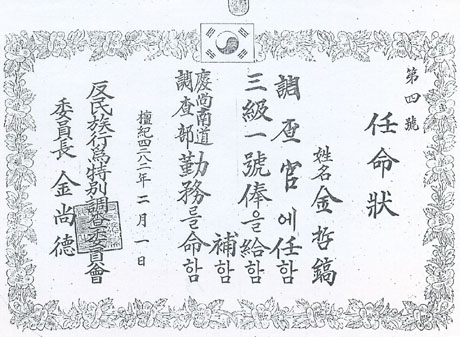 第四號
任命狀
姓名 金哲鎬
調查官에任함
三級一號俸을給함
補함
慶尚南道
調查部勤務를命함
檀紀四二八二年 二月一日
反民族行爲特別調查委員會
委員長 金尚德